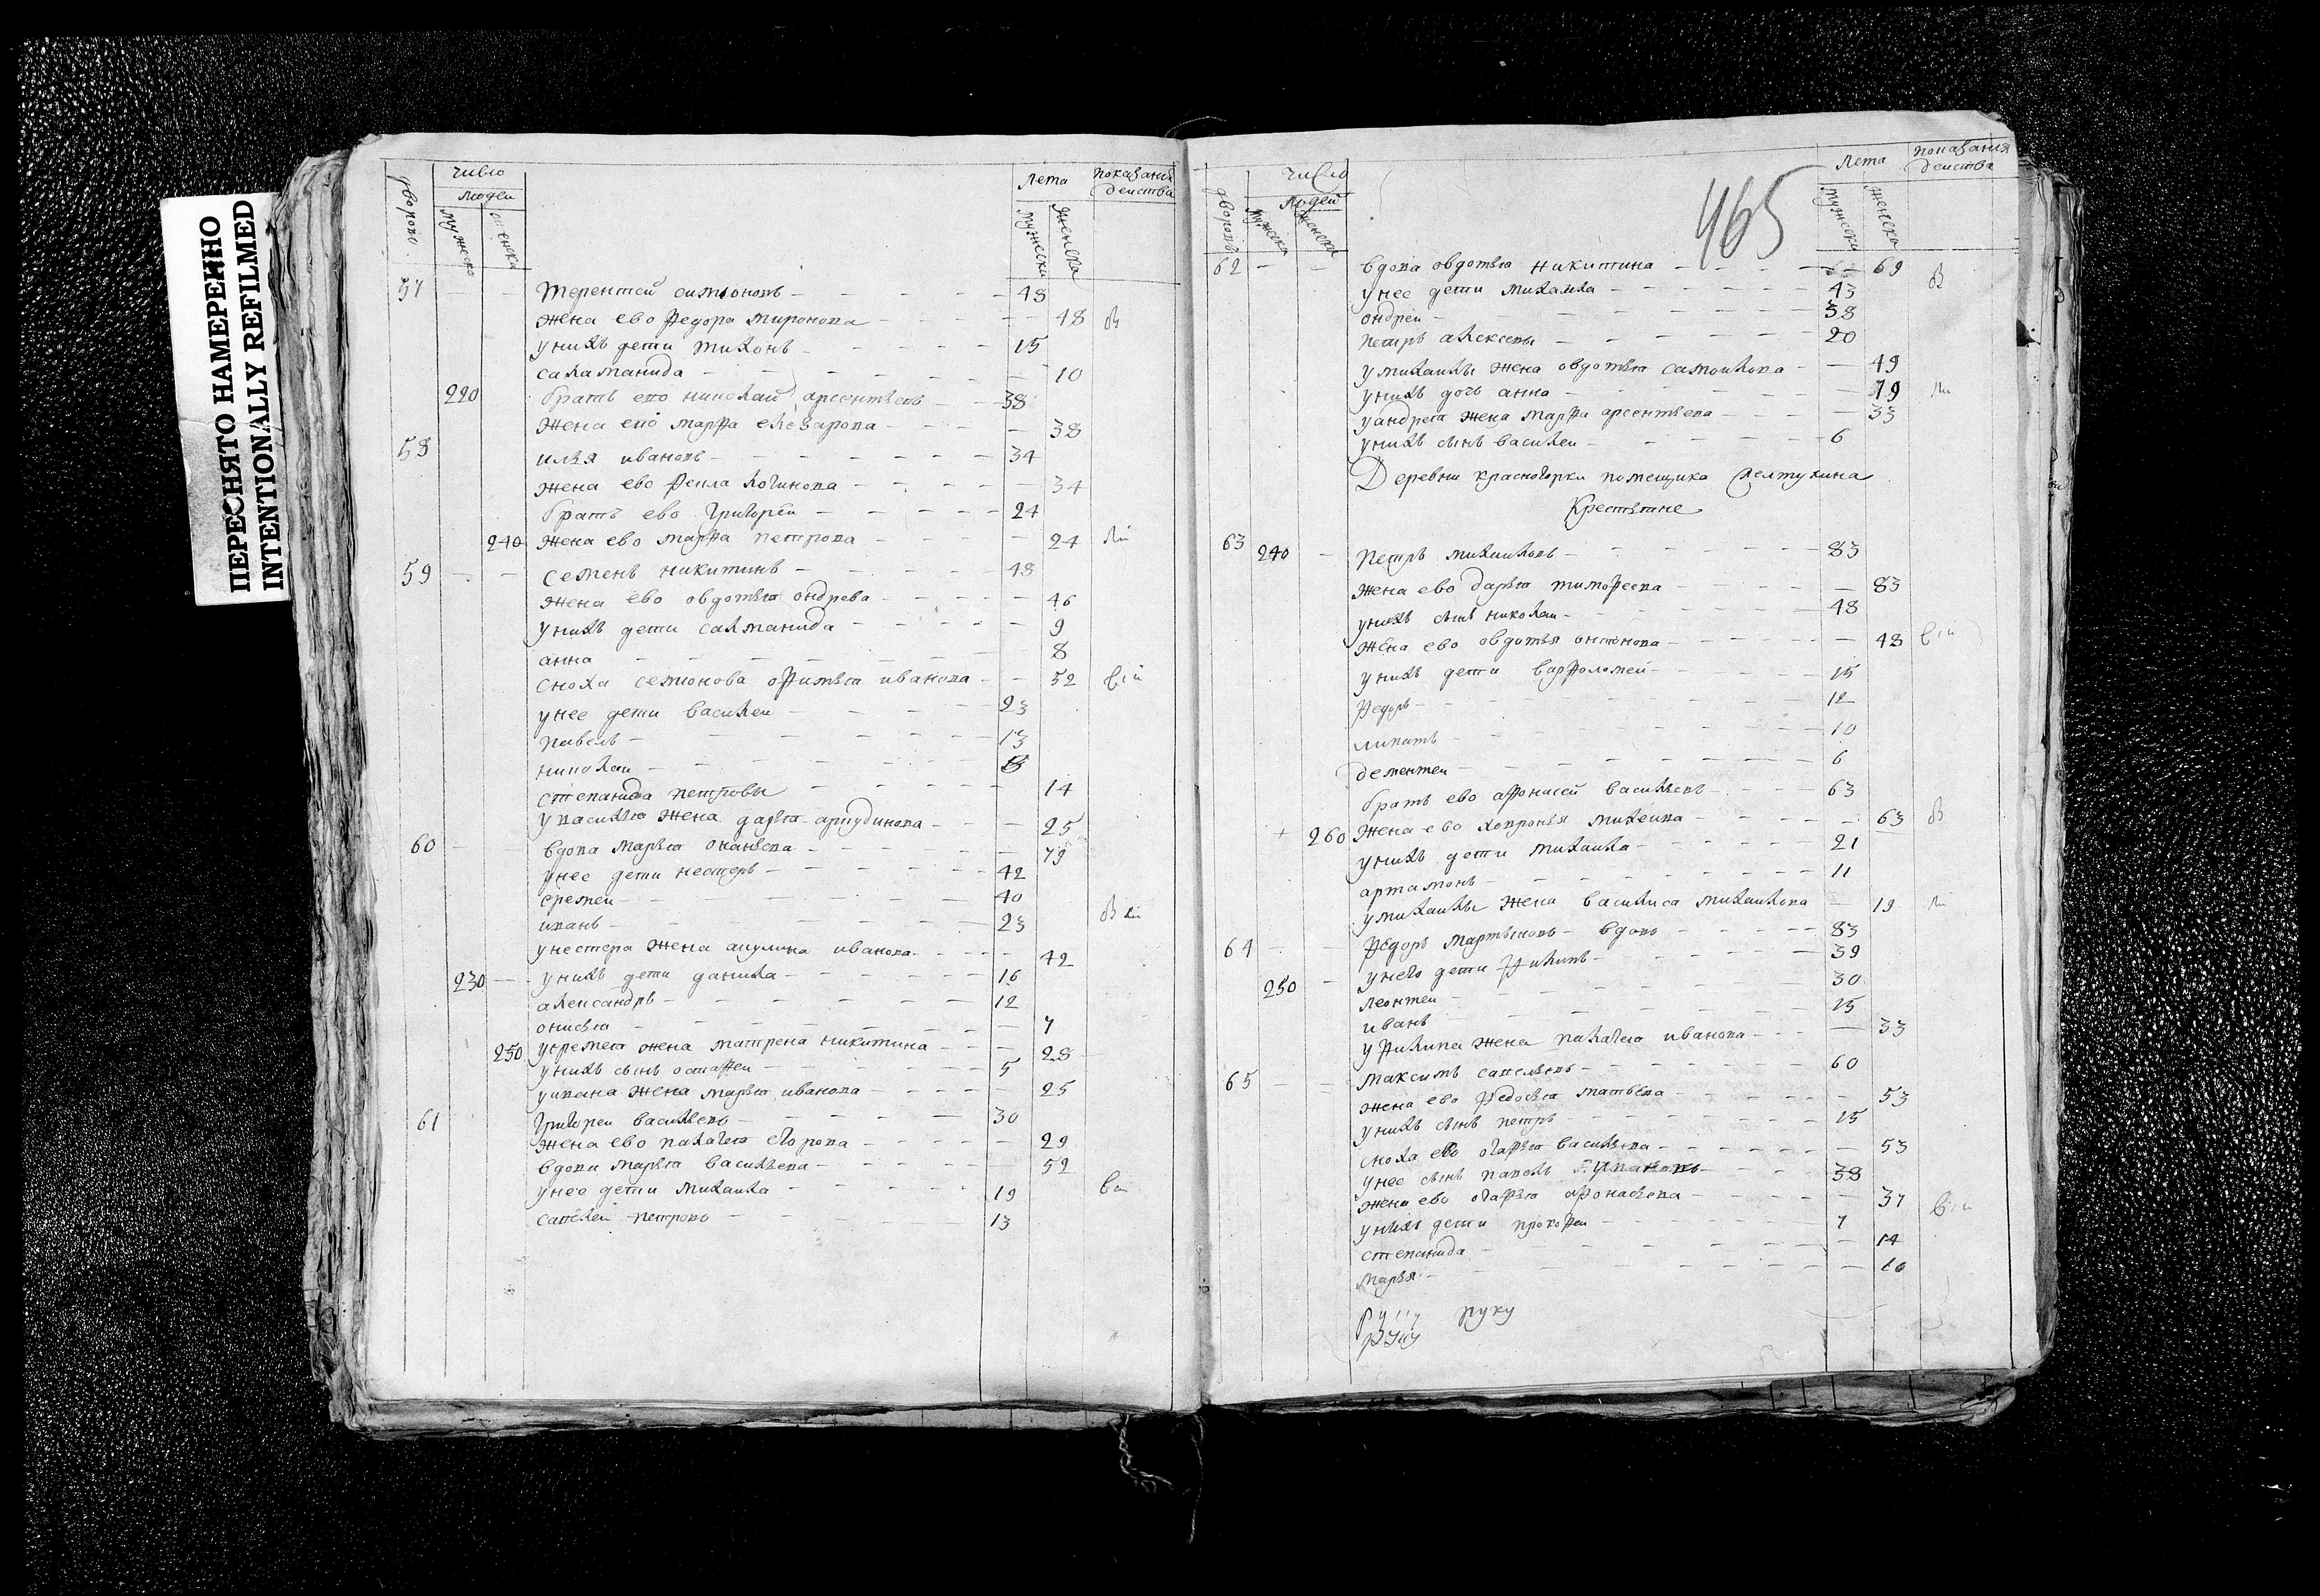 ПЕРЕСНЯТО НАМЕРЕННО
INTENTIONALLY REFILMED
число
людеи
Лета
показании
деиства
дворовъ
мужеска
женска
мужески
женска
57 Терентеи симионовъ 48
жена ево Федора миронова 48
унихъ дети тихонъ 15
саламанида 10
220 братъ ево николаи арсентьевъ 38
жена ево марфа елезарова 38
58 илья ивановъ 34
жена ево фекла логинова 34
братъ ево григореи 24
240 жена ево марфа петрова 24
59 семенъ никитинъ 48
жена ево овдотья ондрева 46
унихъ дети салманида 9
анна 8
сноха семионова офимья иванова 52
унее дети василеи 23
павелъ 13
николаи
степанида петровы 14
увасилья жена дарья 25
60 вдова марья онаньева 79
унее дети нестеръ 42
еремеи 40
иванъ 23
унестера жена акулина иванова 42
230 унихъ дети данила 16
александръ 12
онисья 7
250 уеремея жена матрена никитина 28
унихъ сынъ остафеи 5
уивана жена марья иванова 25
61 григореи васильевъ 30
жена ево палагея егорова 29
вдова марья васильева 52
унее дети михаила 19
савелеи петровы 13
465
число
людеи
Лета
показания
деиства
дворовъ
мужеска
женска
мужески
женска
62 вдова овдотья никитина 69
унее дети михаила 43
ондреи 38
петръ алексевы 20
умихаилы жена овдотья самоилова 49
унихъ дочь анна 19
уандрея жена марфа арсентьева 33
унихъ сынъ василеи 6
Деревни красногорки помещика Желтухина
Крестьяне
63 240 петръ михаиловъ 83
жена ево дарья тимофеева 83
унихъ сынъ николаи 48
жена ево овдотья онтонова 48
унихъ дети варфоломеи 15
федоръ 12
липатъ 10
дементеи 6
братъ ево афонасеи васильевъ 63
260 жена ево хопронья михеива 63
унихъ дети михаила 21
артамонъ 11
умихаилы жена василиса михаилова 19
64 федоръ мартыновъ вдовъ 83
унего дети филипъ 39
250 леонтеи 30
иванъ 15
уфилипа жена палагея иванова 33
65 максимъ савельевъ 60
жена ево федосья матвева 53
унихъ сынъ петръ 15
сноха ево агафья васильева 53
унее сынъ павелъ 38
жена ево агафья афонасьева 37
унихъ дети прокофеи 7
степанида 14
марья 10
руку